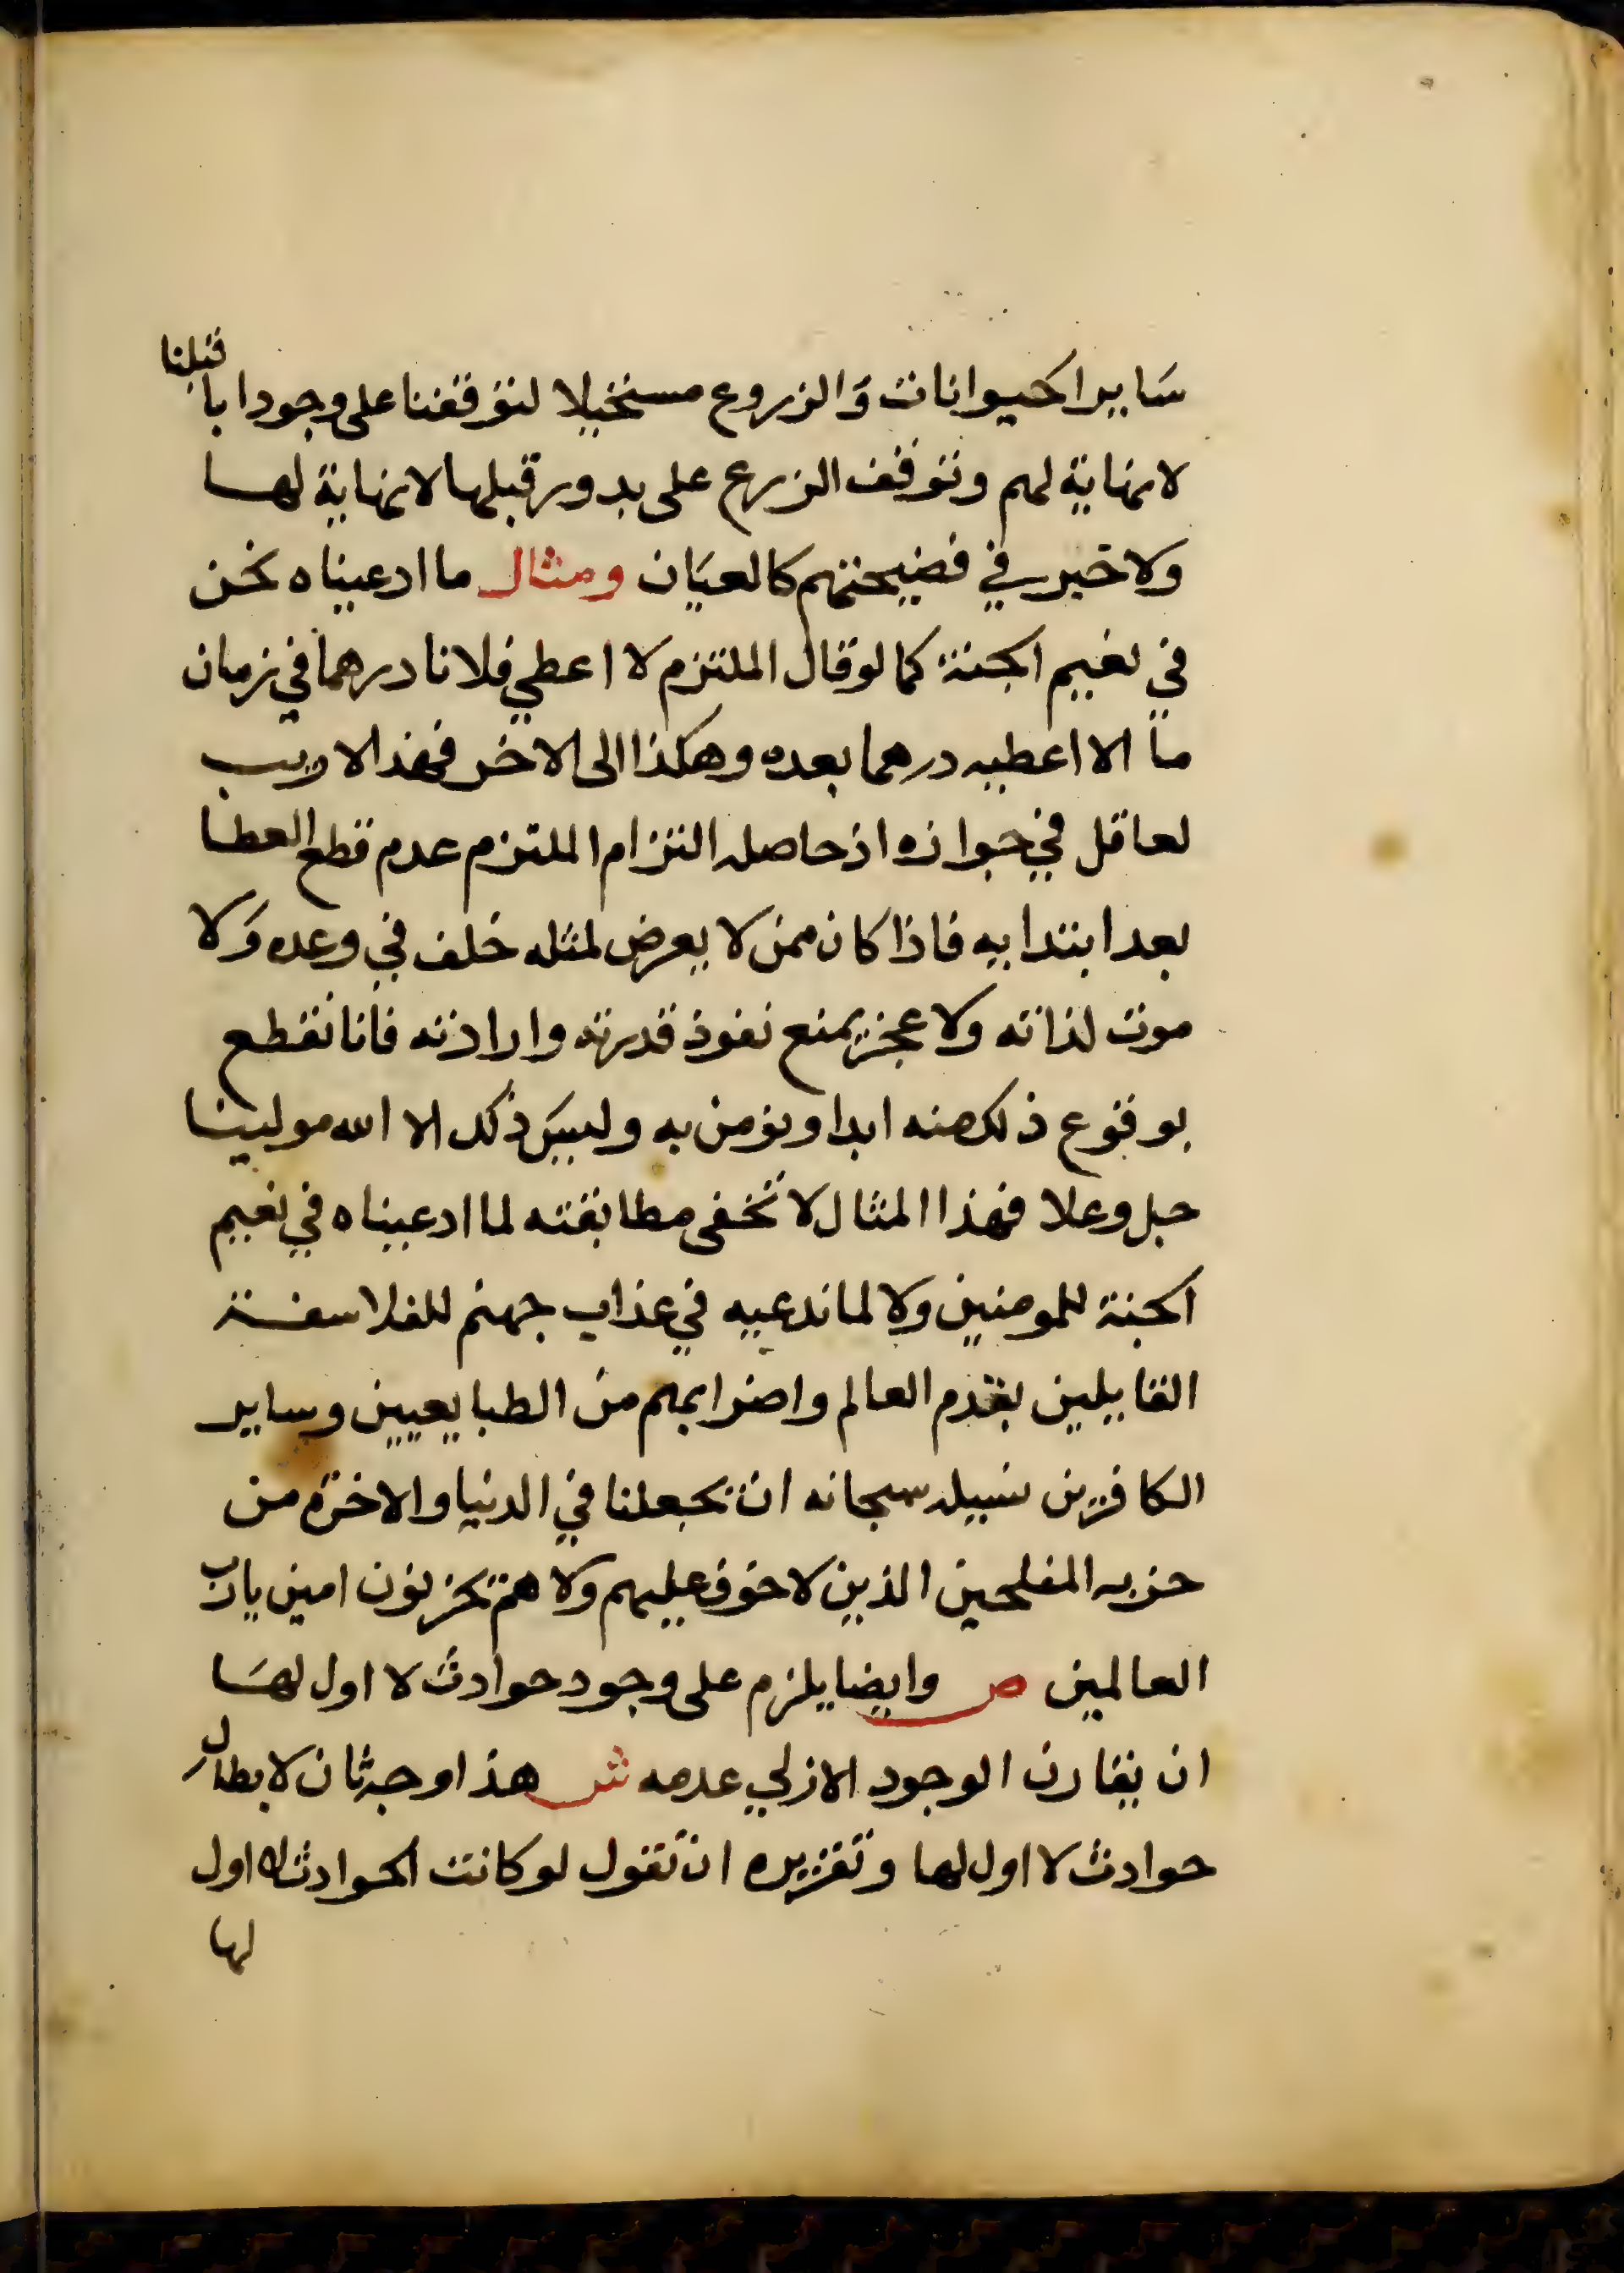 سَاير الحيوانات وَالزروع مستحيلا لتوقفنا على وجود ابا قبلنا
لا نهاية لهم وتوقف الزرع على بدور قبلها لا نهاية لهسا
ولا خير في فضيحتهم كالعيَان ومثال ما ادعيناه نحن
في نعيم الجنة كما لو قال الملتزم لا اعطي فلانا درهما في زمان
ما الا اعطيه درهما بعده وهكذا الى الاخر فهذا لا ريب
لعاقل في جوازه اذ حاصله التزام الملتزم عدم قطع العطا
بعد ابتدايه فاذا كان ممن لا يعرض لمثله خلف في وعده وَلا
موت لذاته ولا عجز يمنع نفوذ قدرته وارادته فانا نقطع
بوقوع ذلك منه ابدا ونومن به وليسَ ذلك الا الله مولينا
جل وعلا فهذا المثال لا تخفى مطابقته لما ادعيناه في نعيم
الجنة للمومنين ولا لما ندعيه في عذاب جهنم للفلاسفة
القايلين بقدم العالم واضرابهم من الطبايعيين وساير
الكافرين نسيله سبحانه ان يجعلنا في الدنيا والاخرة من
حزبه المفلحين الذين لا خوف عليهم ولا هم يحزنون امين يا رب
العالمين ص وايضا يلزم على وجود حوادث لا اول لهَا
ان يقارن الوجود الازلي عدمه ش هذا وجه ثان لابطال
حوادث لا اول لها وتقريره ان تقول لو كانت الحوادث لا اول
لها